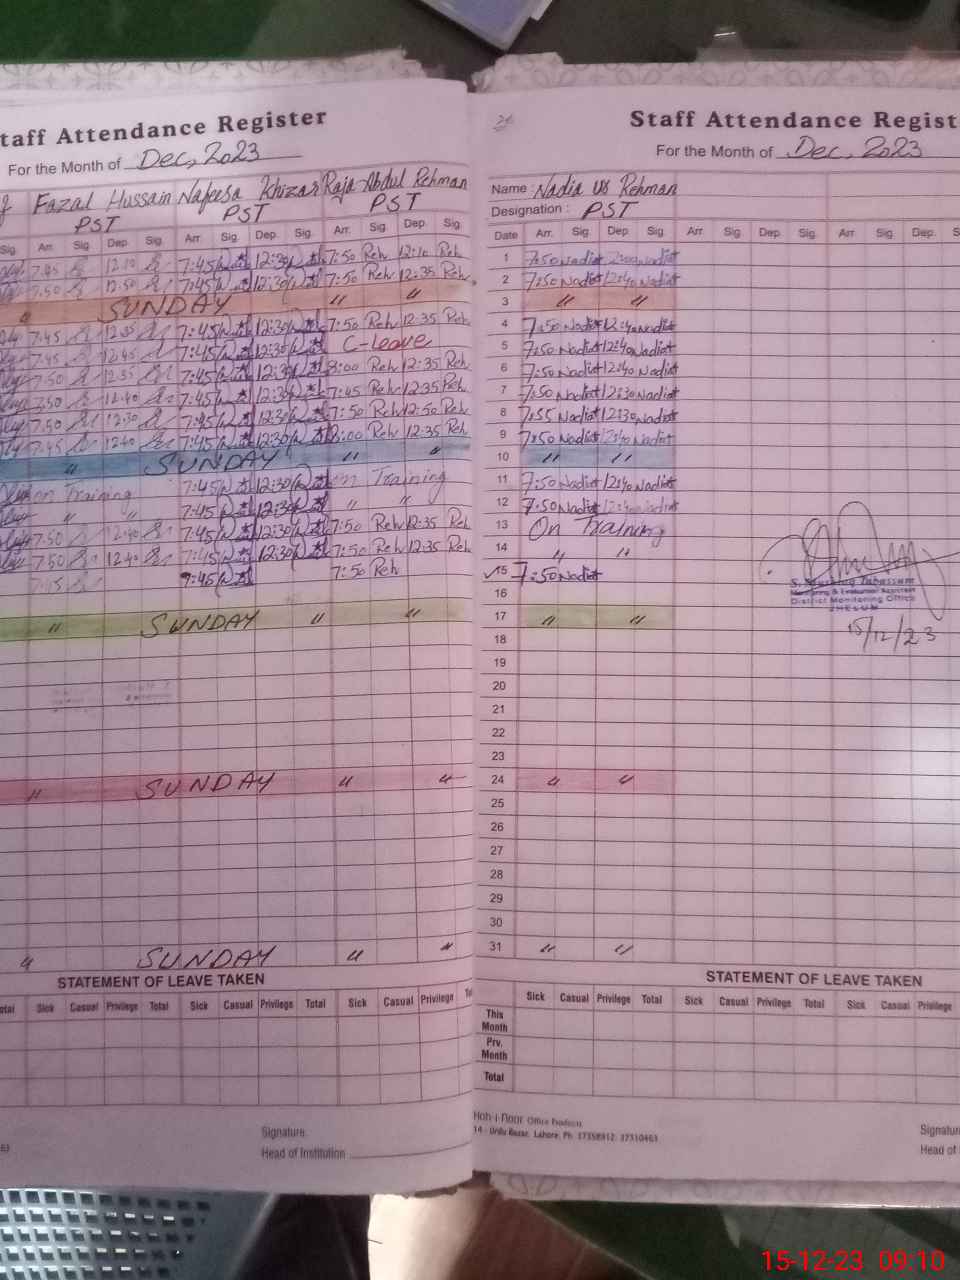 Staff Attendance Register
For the Month of Dec, 2023
Fazal Hussain Nafeesa Khizar Raja Abdul Rehman
PST PST PST
Sig. Arr. Sig. Dep. Sig. Arr. Sig. Dep. Sig. Arr. Sig. Dep. Sig.
7:45 12:10 7:45 12:30 7:50 Reh 12:10 Reh
7:50 12:50 7:45 12:30 7:50 Reh 12:35 Reh
" SUNDAY " "
7:45 12:35 7:45 12:30 7:50 Reh 12:35 Reh
7:45 12:45 7:45 12:30 C-Leave
7:50 12:35 7:45 12:30 8:00 Reh 12:35 Reh
7:50 12:40 7:45 12:30 7:45 Reh 12:35 Reh
7:50 12:30 7:45 12:30 7:50 Reh 12:50 Reh
7:45 12:40 7:45 12:30 8:00 Reh 12:35 Reh
" SUNDAY " "
on Training 7:45 12:30 on Training
" " 7:45 12:30 " "
7:50 12:40 7:45 12:30 7:50 Reh 12:35 Reh
7:50 12:40 7:45 12:30 7:50 Reh 12:35 Reh
7:45 7:45 7:50 Reh
" SUNDAY " "
" SUNDAY " "
" SUNDAY " "
STATEMENT OF LEAVE TAKEN
Total Sick Casual Privilege Total Sick Casual Privilege Total Sick Casual Privilege
Signature:
Head of Institution
Staff Attendance Regist
For the Month of Dec, 2023
Name : Nadia ur Rehman
Designation : PST
Date Arr. Sig. Dep. Sig. Arr. Sig. Dep. Sig. Arr. Sig. Dep. S
1 7:50 Nadia Nadia
2 7:50 Nadia 12:40 Nadia
3 " "
4 7:50 Nadia 12:40 Nadia
5 7:50 Nadia 12:40 Nadia
6 7:50 Nadia 12:40 Nadia
7 7:50 Nadia 12:30 Nadia
8 7:55 Nadia 12:30 Nadia
9 7:50 Nadia 12:40 Nadia
10 " "
11 7:50 Nadia 12:40 Nadia
12 7:50 Nadia 12:40 Nadia
13 On Training
14 " "
15 7:50 Nadia
16
17 " "
18
19
20
21
22
23
24 " "
25
26
27
28
29
30
31 " "
Tabassum
Monitoring & Evaluation Assistant
District Monitoring Office
JHELUM
15/12/23
STATEMENT OF LEAVE TAKEN
Sick Casual Privilege Total Sick Casual Privilege Total Sick Casual Privilege
This Month
Prv. Month
Total
Office Products
14 - Urdu Bazar, Lahore. Ph: 37358912, 37310463
Signature
Head of
15-12-23 09:10